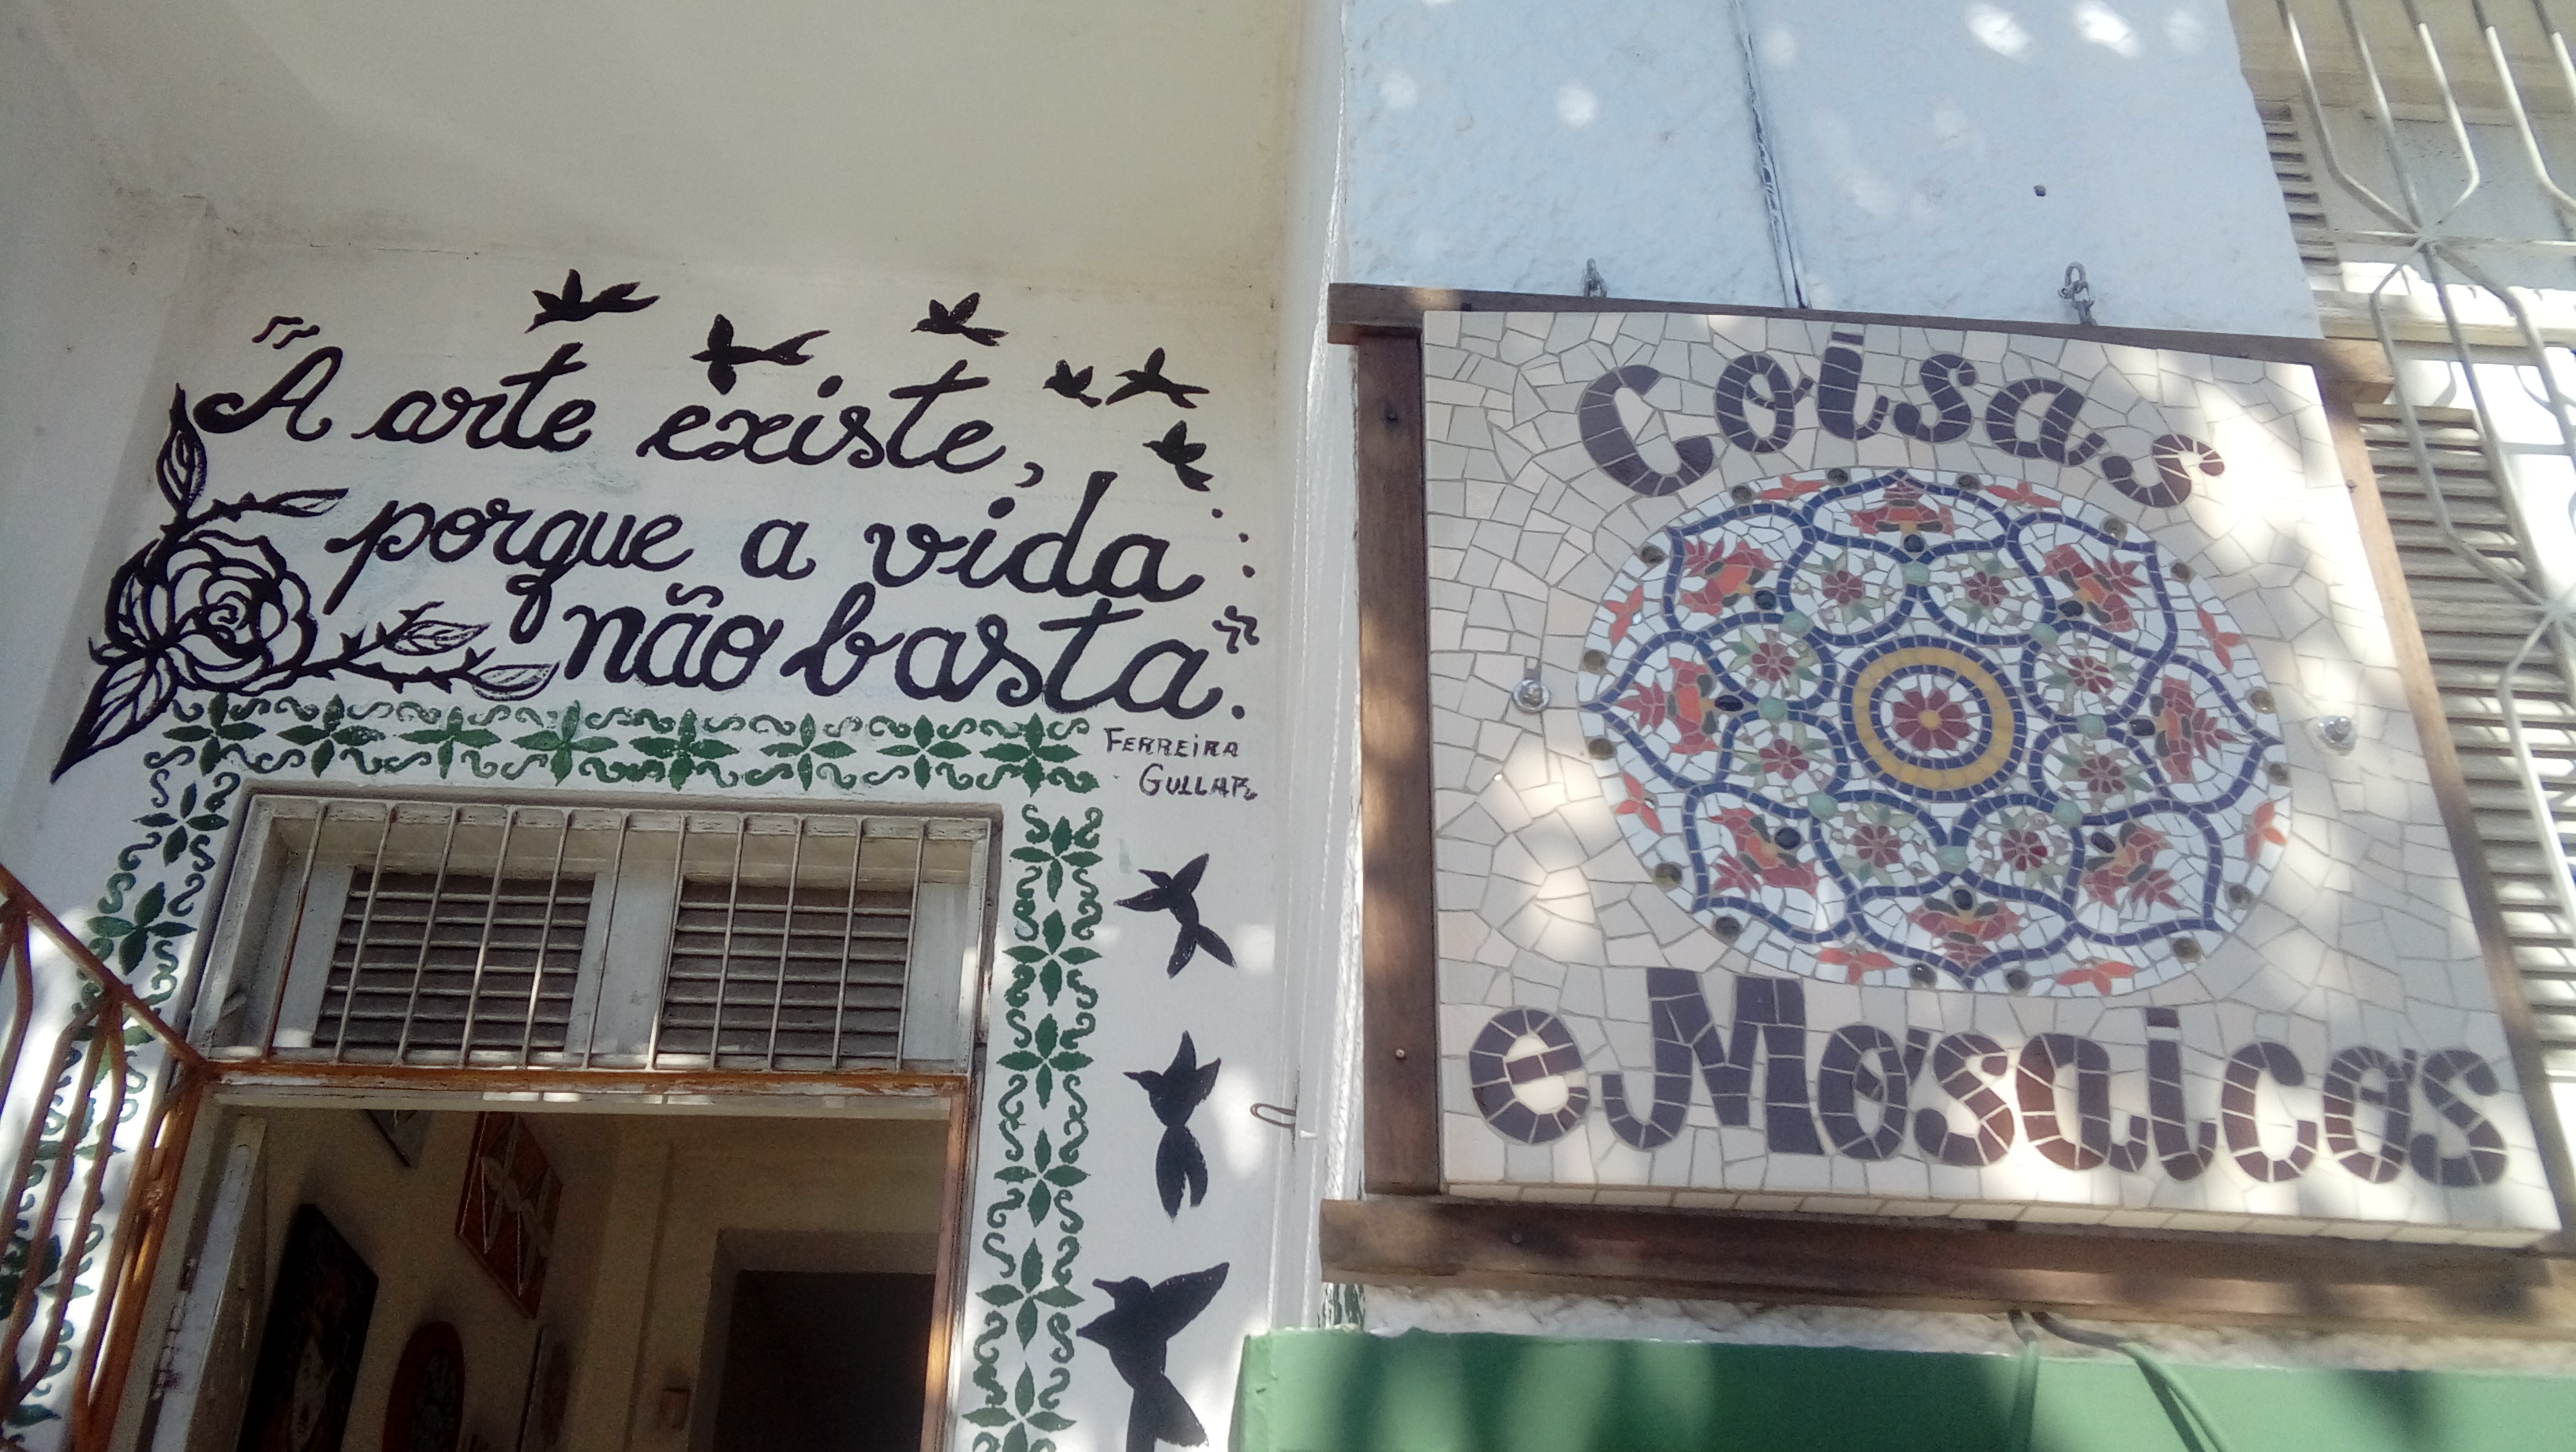 "A arte existe,
porque a vida
não basta."
FERREIRA
GULLAR
Coisas
e Mosaicos